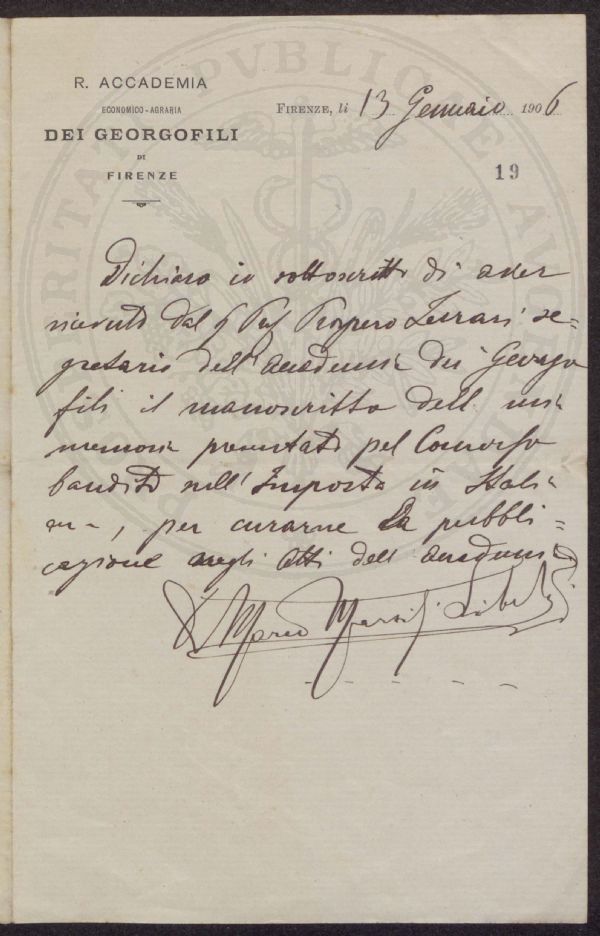 R. ACCADEMIA
ECONOMICO-AGRARIA
DEI GEORGOFILI
DI
FIRENZE
FIRENZE, li 13 Gennaio 1906
19
PROSPERITATI PUBLICAE AUGENDAE
Dichiaro io sottoscritto di aver
ricevuto dal Prof Prospero Ferrari se=
gretario dell'Accademia dei Georgo
fili il manoscritto della mia
memoria presentata pel Concorso
bandito sull'Imposta in Italia
, per curarne la pubbli=
cazione negli Atti dell'Accademia
Marco Marsili Libelli